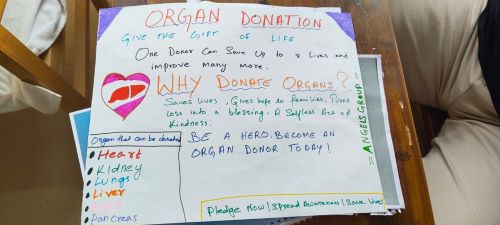 ORGAN DONATION
GIVE THE GIFT OF LIFE
One Donor Can Save Up to 8 Lives and
improve Many more.
WHY DONATE ORGANS?
Saves lives, Gives hope to families, Turns
Loss into a blessing, A Selfless Act of
Kindness.
Organ that can be donated
Heart
Kidney
Lungs
Liver
Eyes
Pancreas
BE A HERO. BECOME AN
ORGAN DONOR TODAY!
Pledge Now | Spread Awareness | Save Lives
= ANGELS GROUP =